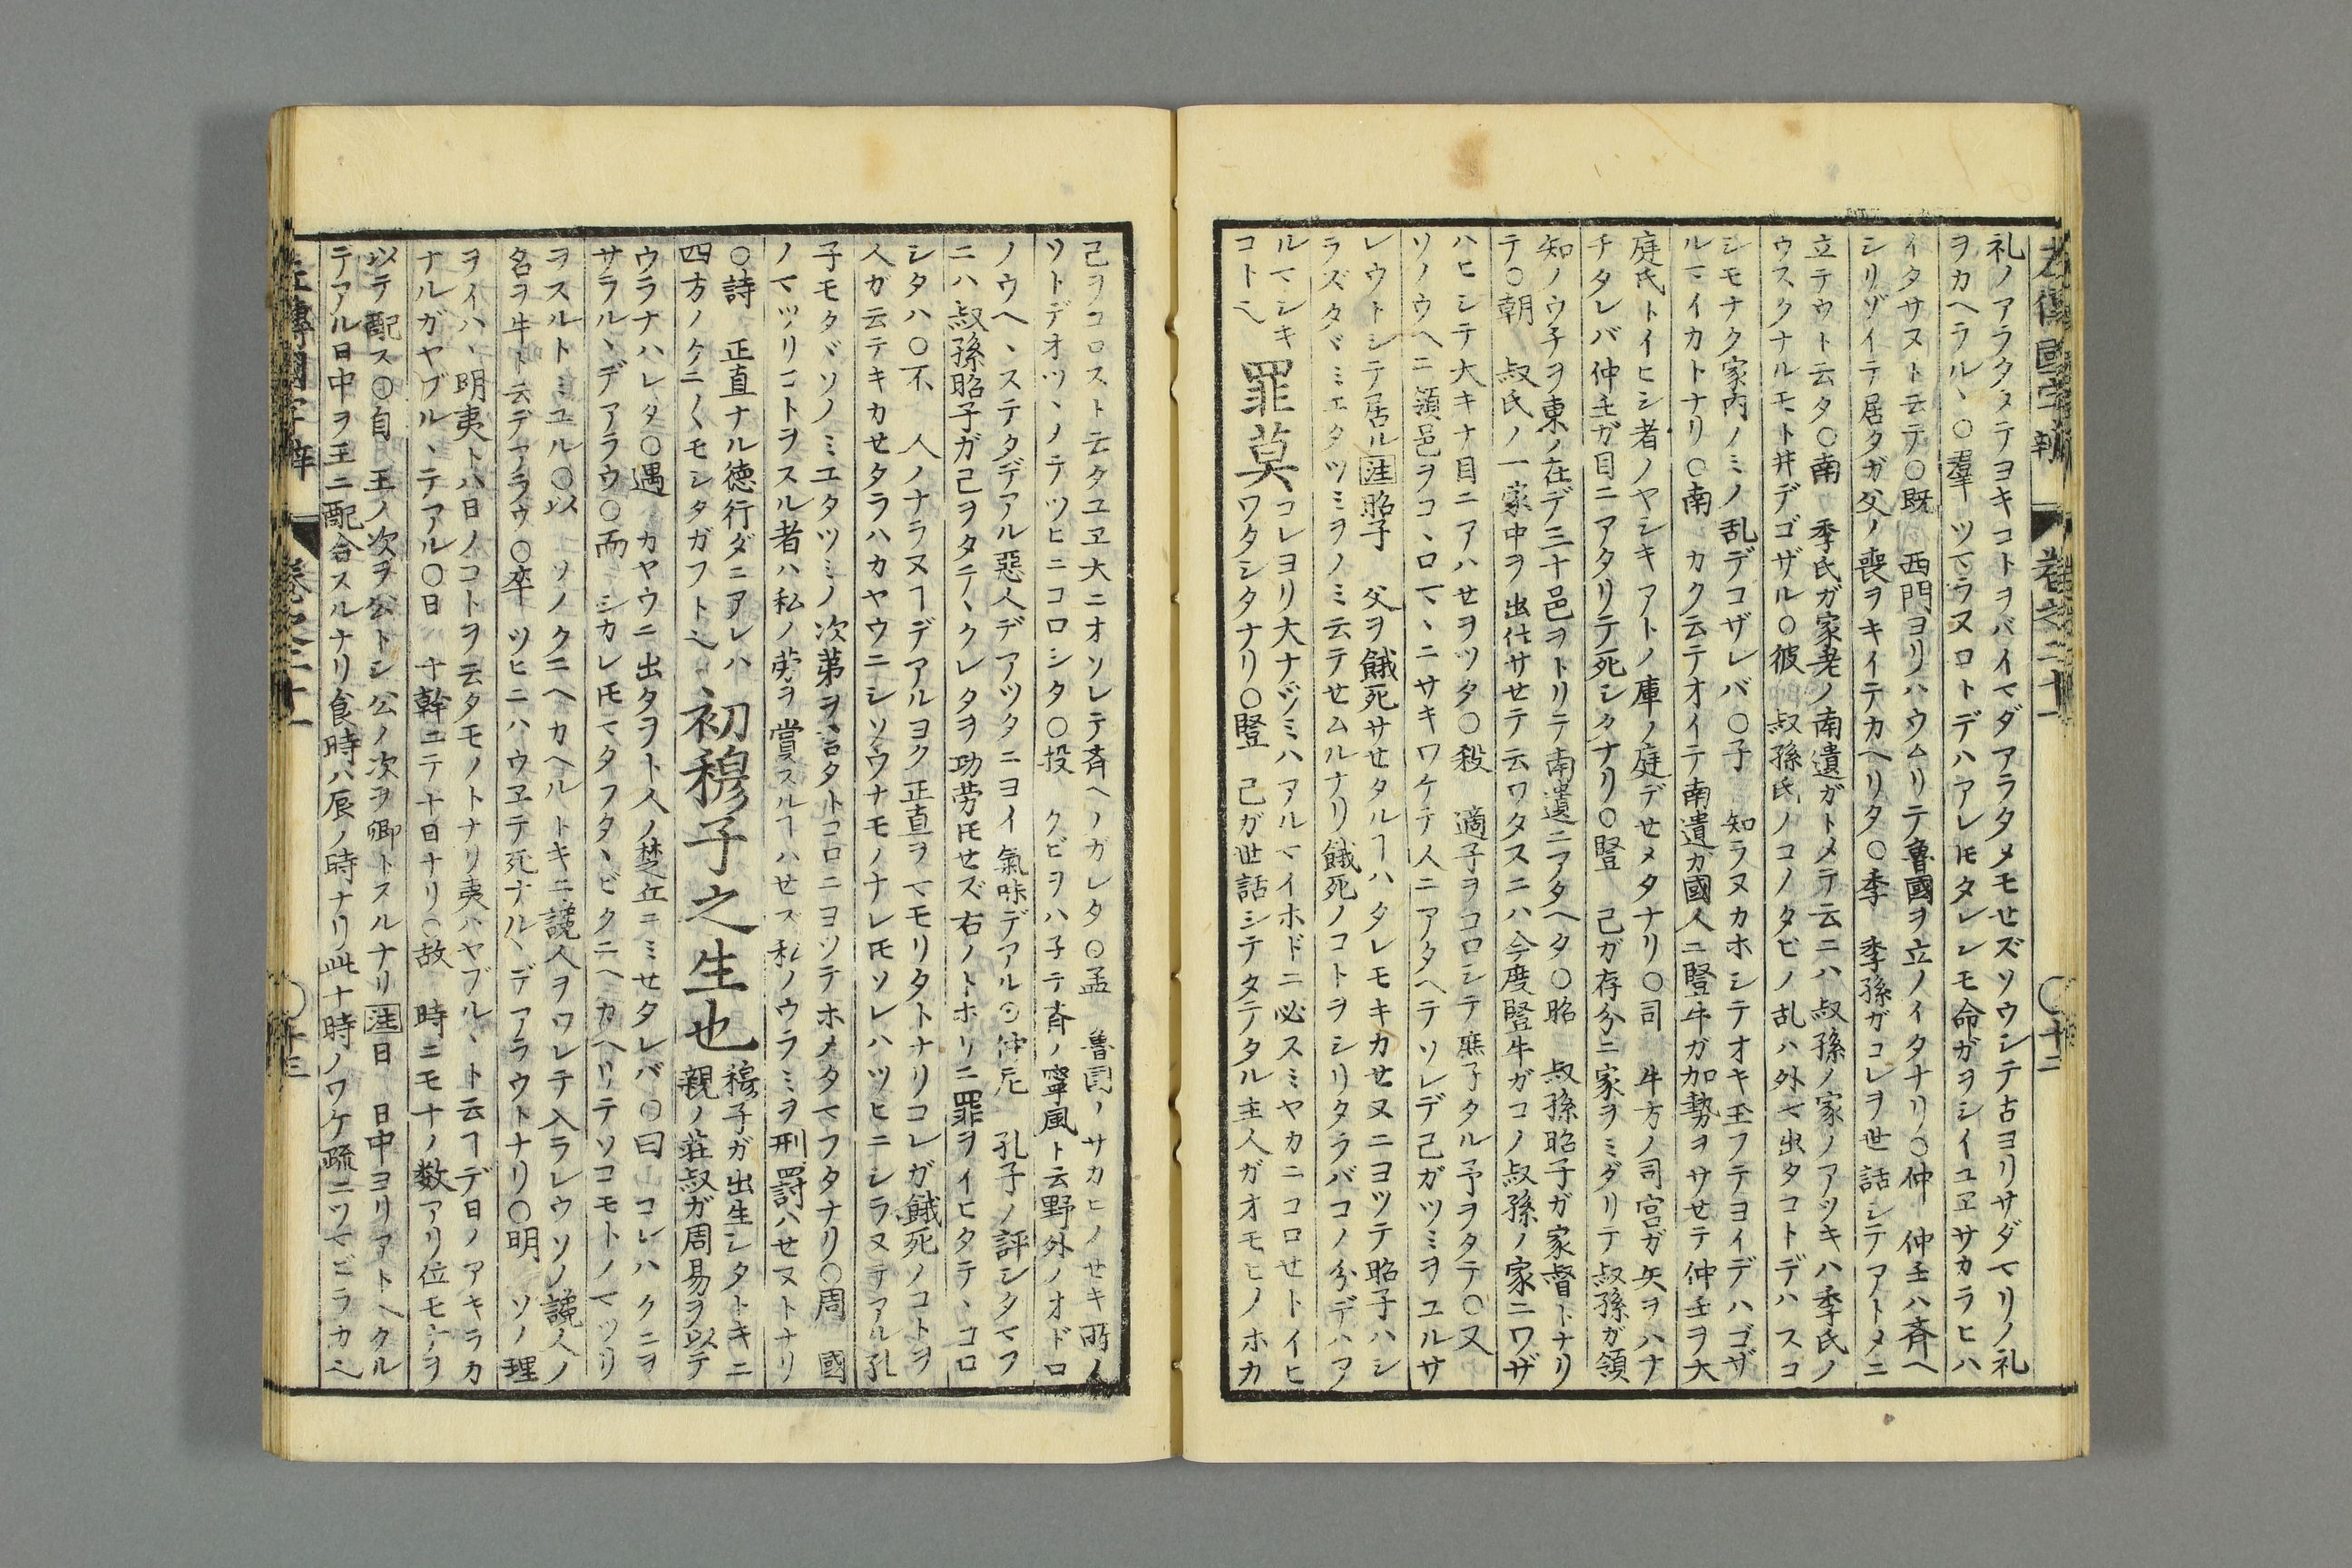 左傳國字辯 卷之二十一 〇十二
礼ノアラタメテヨキコトヲバイマダアラタメモセズソウシテ古ヨリサダマリノ礼
ヲカヘラル、〇羣 ツマラヌコトデハアレ𪜈タレシモ命ガヲシイユヱサカラヒハ
イタサヌト云テ〇既 西門ヨリハウムリテ魯國ヲ立ノイタナリ〇仲 仲壬ハ斉ヘ
シリゾイテ居タガ父ノ喪ヲキイテカヘリタ〇季 季孫ガコレヲ世話シテアトメニ
立テウト云タ〇南 季氏ガ家老ノ南遺ガトメテ云ニハ叔孫ノ家ノアツキハ季氏ノ
ウスクナルモト井デゴザル〇彼 叔孫氏ノコノタビノ乱ハ外マ出タコトデハスコ
シモナク家内ノミノ乱デコザレバ〇子 知ラヌカホシテオキ玉フテヨイデハゴザ
ルマイカトナリ〇南 カク云テオイテ南遺ガ國人ニ豎牛ガ加勢ヲサセテ仲壬ヲ大
庭氏トイヒシ者ノヤシキアトノ庫ノ庭デセメタナリ〇司 牛方ノ司宮ガ矢ヲハナ
チタレバ仲壬ガ目ニアタリテ死シタナリ〇豎 己ガ存分ニ家ヲミダリテ叔孫ガ領
知ノウ子ヲ東ノ在デ三十邑ヲトリテ南遺ニアタヘタ〇昭 叔孫昭子ガ家督トナリ
テ〇朝 叔氏ノ一家中ヲ出仕サセテ云ワタスニハ今度豎牛ガコノ叔孫ノ家ニワザ
ハヒシテ大キナ目ニアハセヲツタ〇殺 適子ヲコロシテ庶子タル予ヲタテ〇又
ソノウヘニ領邑ヲコ、ロマ、ニサキワケテ人ニアタヘテソレデ己ガツミヲユルサ
レウトシテ居ル注昭子 父ヲ餓死サセタルヿハダレモキカセヌニヨツテ昭子ハシ
ラズタヾミエタツミヲノミ云テセムルナリ餓死ノコトヲシリタラバコノ分デハア
ルマシキコトヘ 罪莫 コレヨリ大ナヅミハアルマイホドニ必スミヤカニコロセトイヒ
ワタシタナリ〇豎 己ガ世話シテタテタル主人ガオモヒノホカ
己ヲコロスト云タユヱ大ニオソレテ斉ヘノガレタ〇孟 魯國ノサカヒノセキ所ノ
ソトデオツ、ノテツヒニコロシタ〇投 クビヲハ子テ斉ノ寧風ト云野外ノオドロ
ノウヘ、ステタデアル惡人デアツタニヨイ氣味デアル〇仲尼 孔子ノ評シタマフ
ニハ叔孫昭子ガ己ヲタテ、クレタヲ功労𪜈セズ右ノトホリニ罪ヲイヒタテ、コロ
シタハ〇不 人ノナラヌヿデアルヨク正直ヲマモリタトナリコレガ餓死ノコトヲ
人ガ云テキカセタラハカヤウニシソウナモノナレ𪜈ソレハツヒニシラヌテアル孔
子モタヾソノミユタツミノ次第ヲ云タトコロニヨツテホメタマフタナリ〇周 國
ノマツリコトヲスル者ハ私ノ労ヲ賞スルヿハセス私ノウラミヲ刑罰ハセヌトナリ
〇詩 正直ナル徳行ダニアレハ四方ノクニ〱モシタガフトヘ 初穆子之生也 穆子ガ出生シタトキニ
親ノ荘叔ガ周易ヲ以テ
ウラナハレタ〇遇 カヤウニ出タヲト人ノ楚丘ニミセタレバ〇曰 コレハクニヲ
サラル、デアラウ〇而 シカレ𪜈マタフタ、ビクニヘカヘリテソコモトノマツリ
ヲスルトミユル〇以 ソノクニヘカヘルトキニ讒人ヲツレテ入ラレウソノ讒人ノ
名ヲ牛ト云デアラウ〇卒 ツヒニハウヱテ死ナル、デアラウトナリ〇明 ソノ理
ヲイハ、明夷トハ日ノコトヲ云タモノトナリ夷ハヤブル、ト云ヿデ日ノアキラカ
ナルガヤブル、テアル〇日 十幹ニテ十日ナリ〇故 時ニモナノ数アリ位モ十ヲ
以テ配ス〇自 王ノ次ヲ公トシ公ノ次ヲ卿トスルナリ注日 日中ヨリアトヘクル
テアル日中ヲ王ニ配合スルナリ食時ハ辰ノ時ナリ此十時ノワケ疏ニツマビラカヘ
左傳國字辯 卷之二十一 〇十三